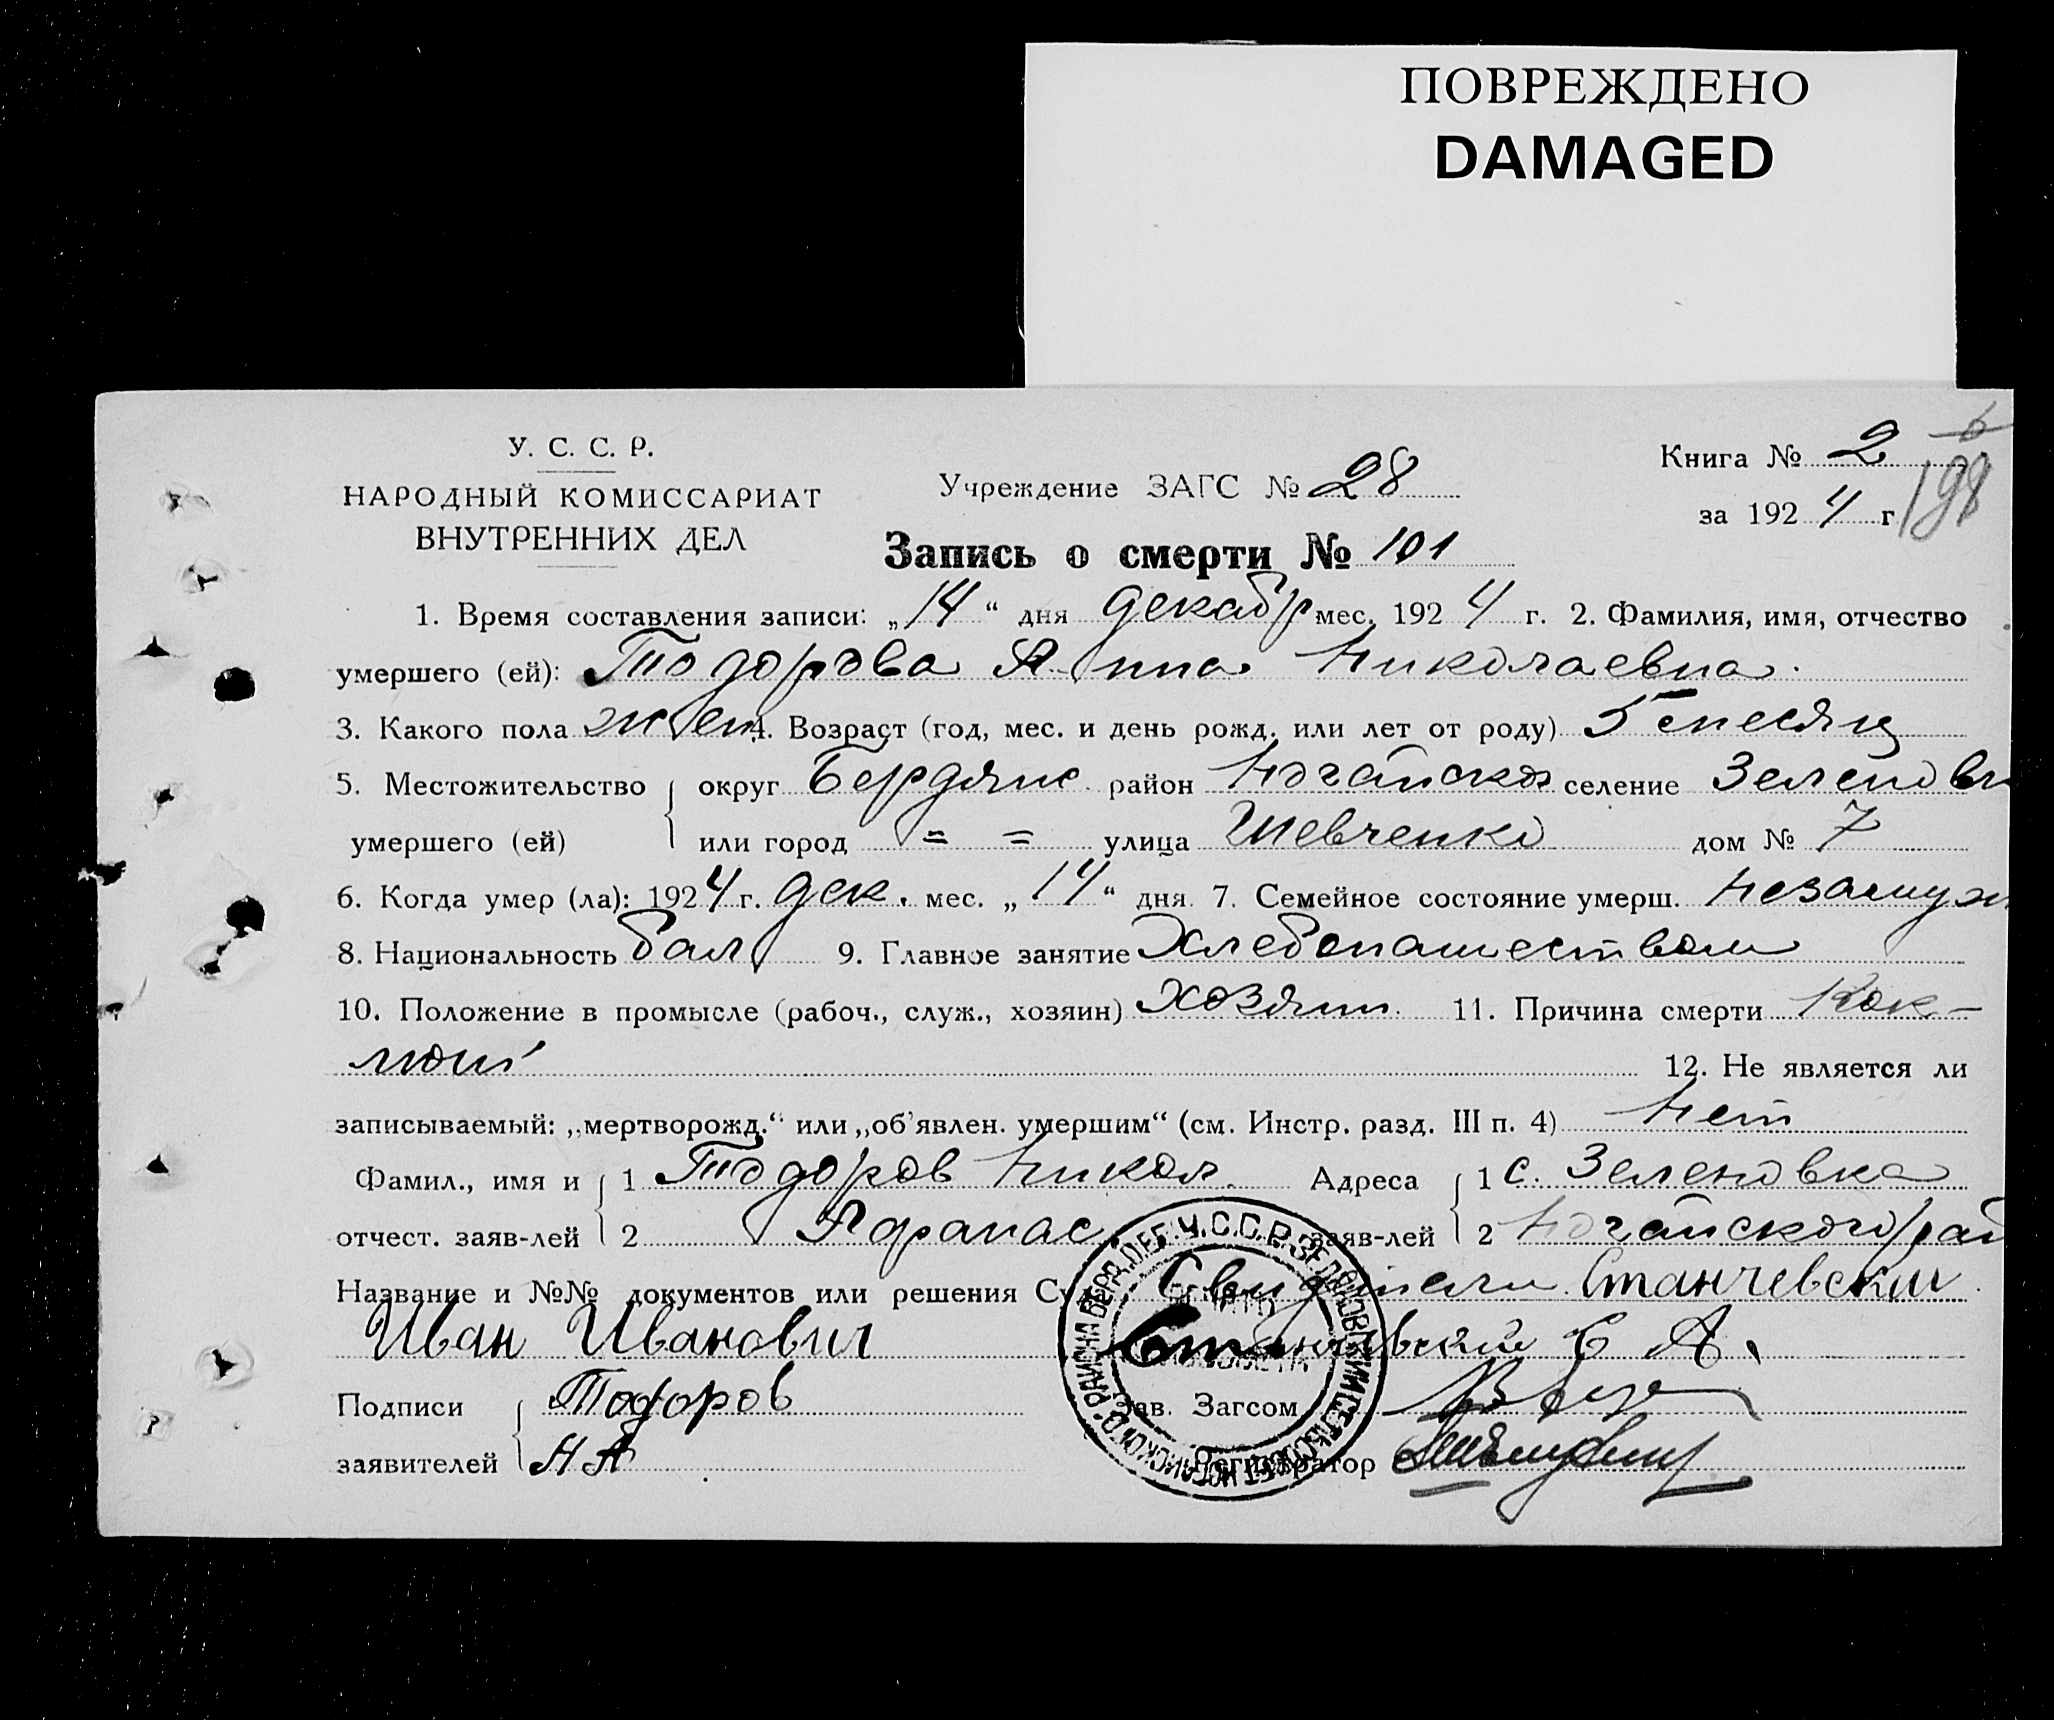 ПОВРЕЖДЕНО
DAMAGED
У. С. С. Р.
НАРОДНЫЙ КОМИССАРИАТ
ВНУТРЕННИХ ДЕЛ
Учреждение ЗАГС № 28
Книга № 2
за 1924 г
198
Запись о смерти № 101
1. Время составления записи: „14“ дня декабр мес. 1924 г. 2. Фамилия, имя, отчество
умершего (ей): Тодорова Анна Николаевна.
3. Какого пола жен 4. Возраст (год, мес. и день рожд. или лет от роду) 5 месяц
5. Местожительство округ Бердянс. район Ногайско селение Зеленовк
умершего (ей) или город = = улица Шевченко дом № 7
6. Когда умер (ла): 1924 г. дек. мес. „14“ дня 7. Семейное состояние умерш. незамуж
8. Национальность бол 9. Главное занятие Хлебопашеством
10. Положение в промысле (рабоч., служ., хозяин) Хозяин. 11. Причина смерти Кок-
люш
12. Не является ли
записываемый: „мертворожд.“ или „об'явлен. умершим“ (см. Инстр. разд. III п. 4) Нет
Фамил., имя и 1 Тодоров Никол. Адреса 1 с. Зеленовка
отчест. заяв-лей 2 Афанас. заяв-лей 2 Ногайского рай
Название и №№ документов или решения Су Свидетели Станчевский
Иван Иванович Станчевский С А.
Подписи Тодоров Зав. Загсом
заявителей Н А Регистратор